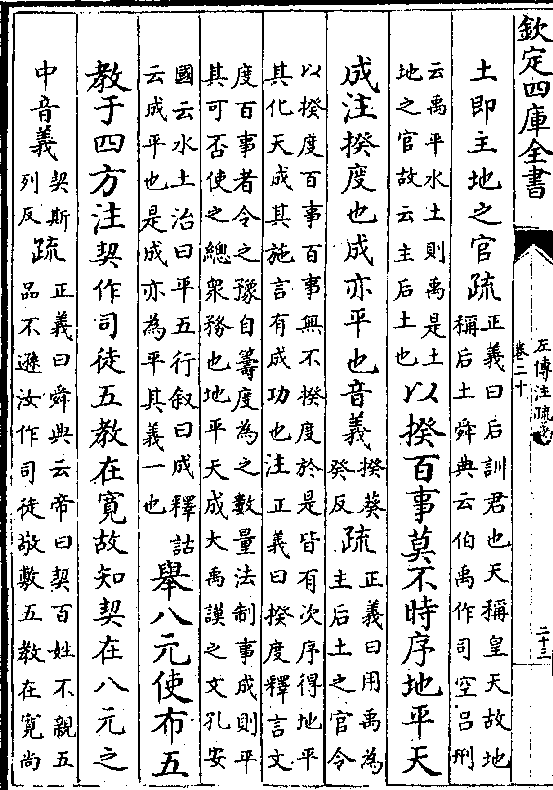 欽定四庫全書
左傳注疏
卷二十
二十三
土即主地之官疏正義曰后訓君也天稱皇天故地
稱后土舜典云伯禹作司空吕刑
云禹平水土則禹是土
地之官故云主后土也以揆百事莫不時序地平天
成注揆度也成亦平也音義揆葵
癸反疏正義曰用禹為
主后土之官令
以揆度百事百事無不揆度於是皆有次序得地平
其化天成其施言有成功也注正義曰揆度釋言文
度百事者令之豫自籌度為之數量法制事成則平
其可否使之總衆務也地平天成大禹謨之文孔安
國云水土治曰平五行叙曰成釋詁
云成平也是成亦為平其義一也舉八元使布五
教于四方注契作司徒五教在寛故知契在八元之
中音義契斯
列反疏正義曰舜典云帝曰契百姓不親五
品不遜汝作司徒敬敷五教在寛尚